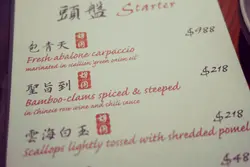 頭盤 Starter
包青天 $988
Fresh abalone carpaccio
marinated in italian green onion oil
聖旨到 $218
Bamboo-clams spiced & steeped
in Chinese rose wine and chili sauce
雲海白玉 $218
Scallops lightly tossed with shredded pomel